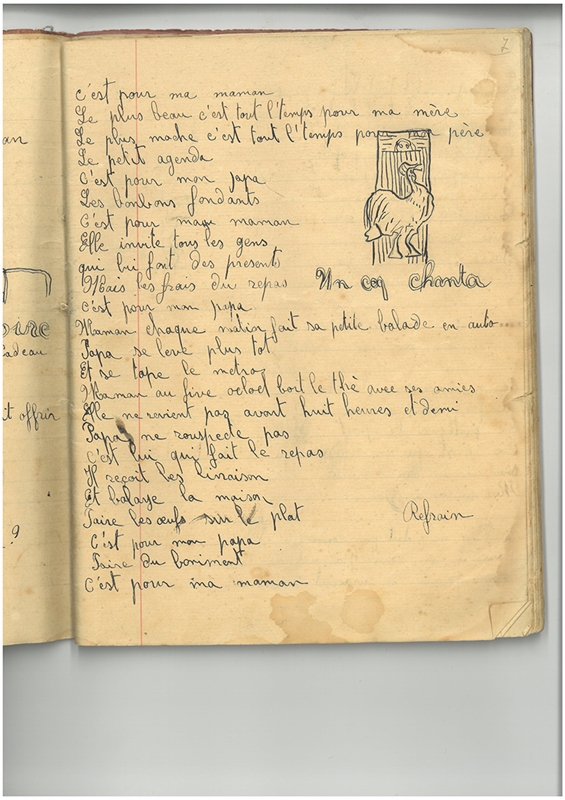 7
an
c'est pour ma maman
Le plus beau c'est tout l'temps pour ma mère
Le plus moche c'est tout l'temps pour mon père
Le petit agenda
C'est pour mon papa
Les bonbons fondants
C'est pour maau maman
Elle invite tous les gens
qui lui font des presents
Mais les frais du repas
Un coq chanta
c'est pour mon papa
Maman chaque matin fait sa petite balade en auto
Papa se leve plus tot
Et se tape le metro
Maman au five ocloct boit le thè avec ses amies
Elle ne revient pas avant huit heures et demi
Papa ne rouspecte pas
C'est lui qui fait le repas
Il reçoit les livraison
Et balaye la maison
Faire les œufs sur le plat
Refrain
C'est pour mon papa
Faire du boniment
C'est pour ma maman
oire
Cadeau
t offrir
. 9